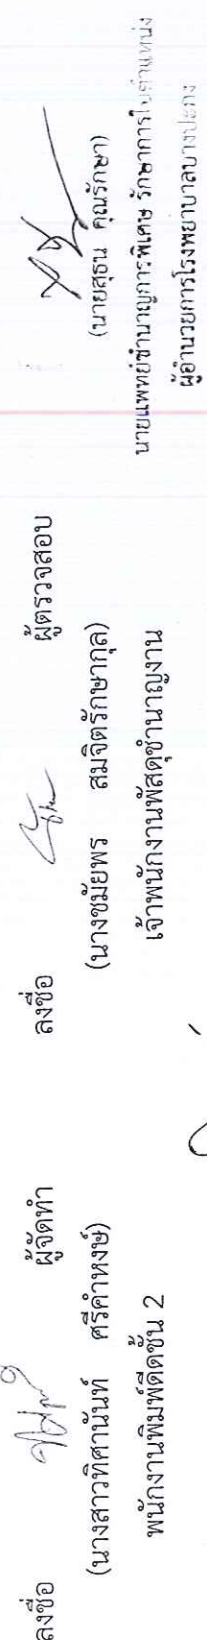 ลงชื่อ ผู้จัดทำ
(นางสาวทิศานันท์ ศรีคำหงษ์)
พนักงานพิมพ์ดีดชั้น 2
ลงชื่อ ผู้ตรวจสอบ
(นางชมัยพร สมจิตรักษากุล)
เจ้าพนักงานพัสดุชำนาญงาน
(นายสุธน คุณรักษา)
นายแพทย์ชำนาญการพิเศษ รักษาการในตำแหน่ง
ผู้อำนวยการโรงพยาบาลบางปะกง